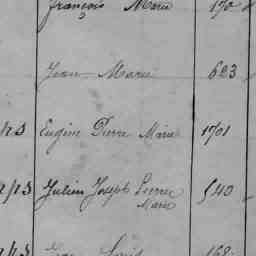 François Marie 170
Jean Marie 683
Eugène Pierre Marie 1701
Julien Joseph Pierre 540
Marie
Louis 168